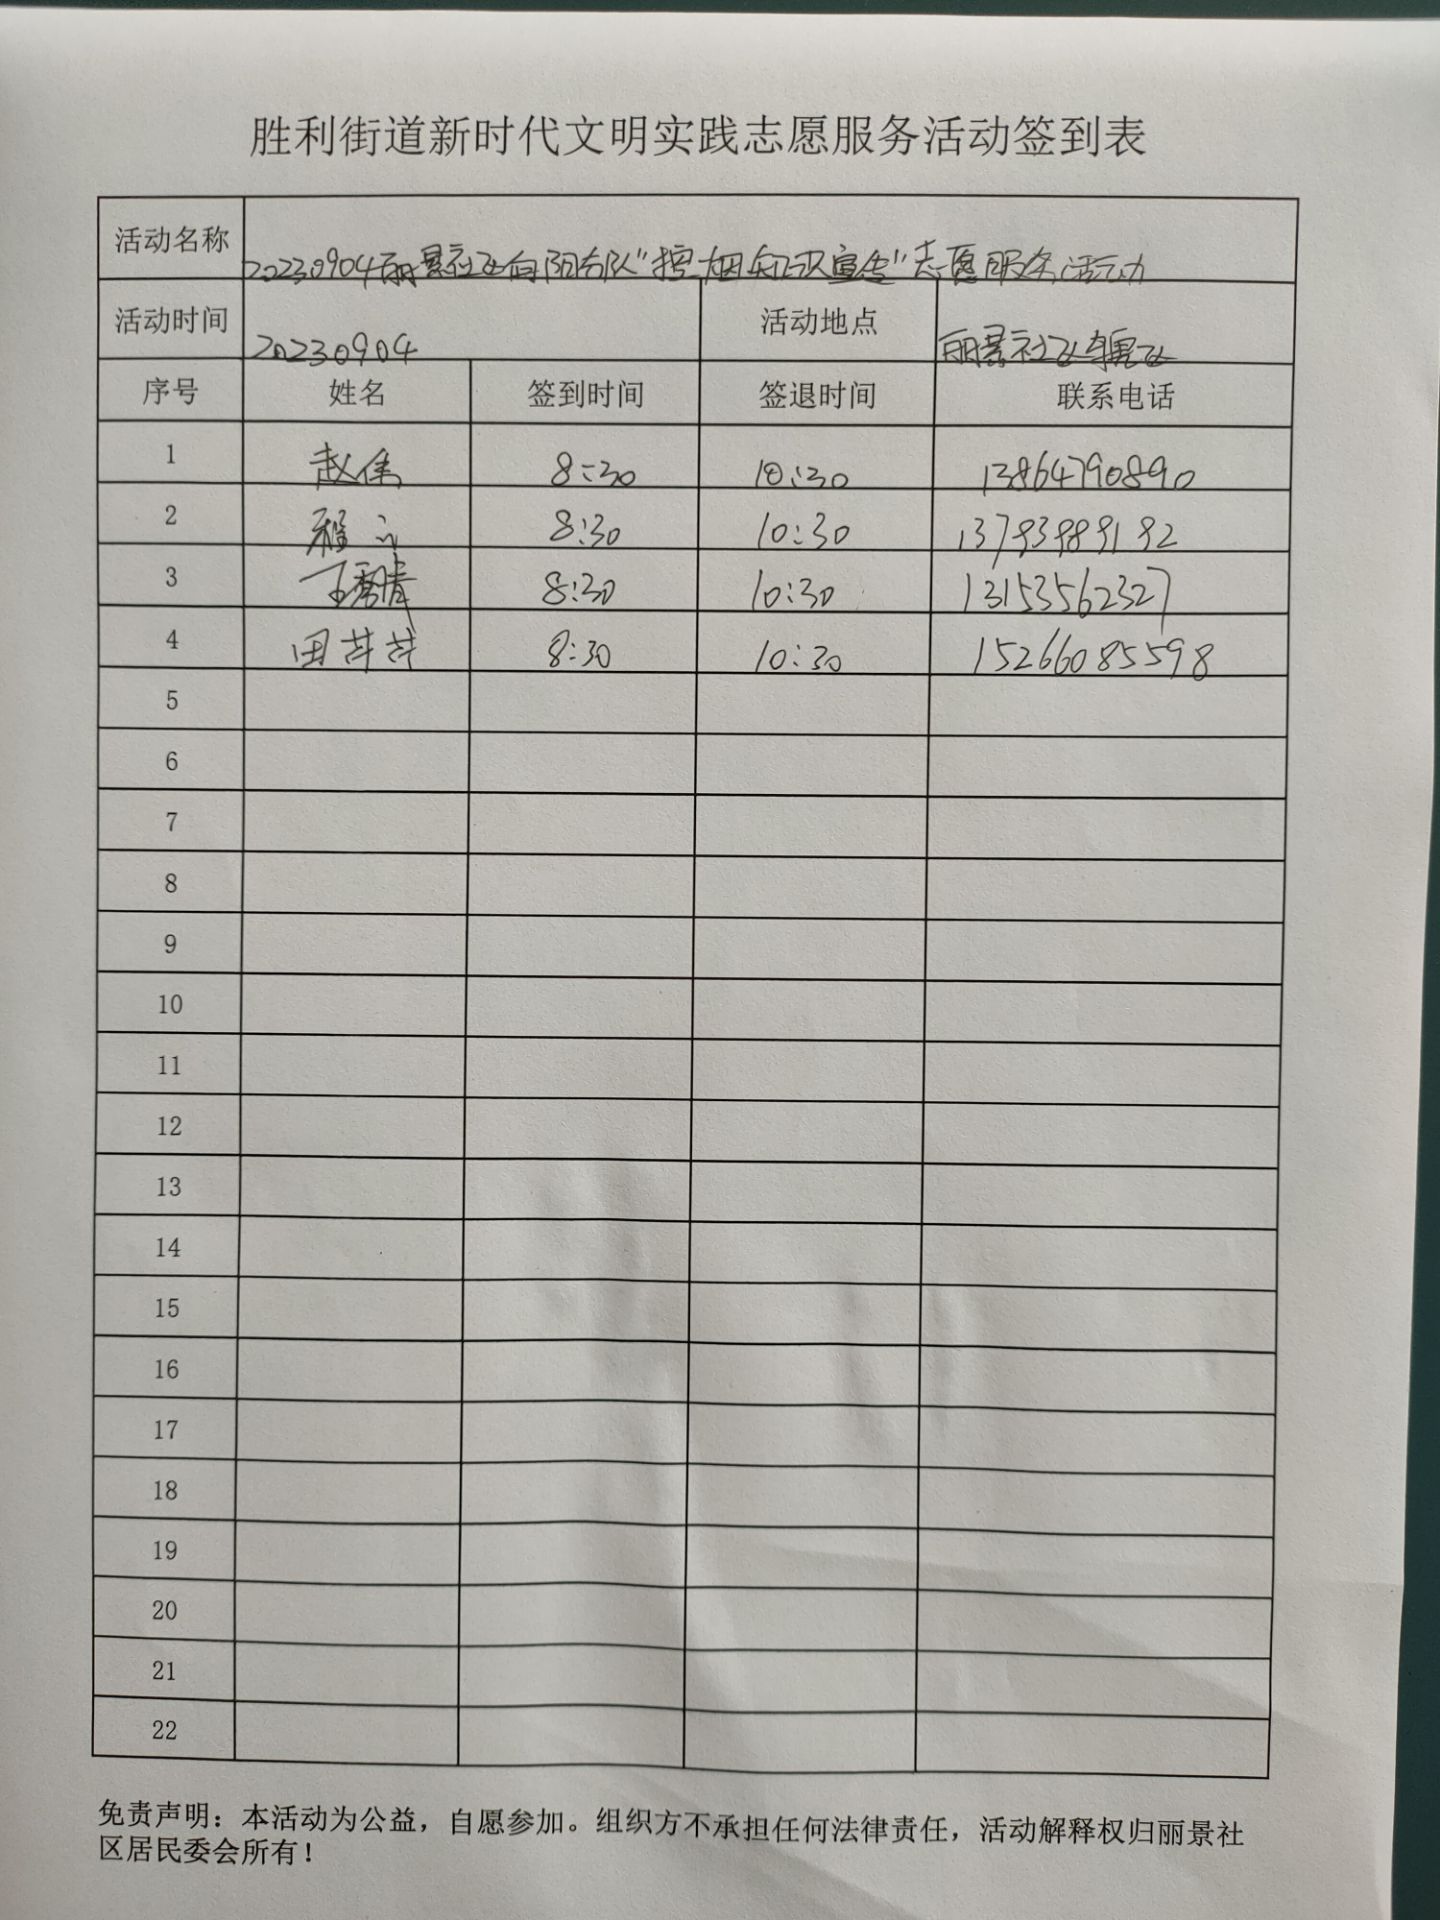 胜利街道新时代文明实践志愿服务活动签到表
活动名称 20230904丽景社区向阳部队“控烟知识宣传”志愿服务活动
活动时间 20230904 活动地点 丽景社区辖区
序号 姓名 签到时间 签退时间 联系电话
1 赵伟 8:30 10:30 13864790890
2 程 8:30 10:30 13793989192
3 王 8:30 10:30 13153562327
4 田芹芹 8:30 10:30 15266085598
5
6
7
8
9
10
11
12
13
14
15
16
17
18
19
20
21
22
免责声明：本活动为公益，自愿参加。组织方不承担任何法律责任，活动解释权归丽景社
区居民委会所有！